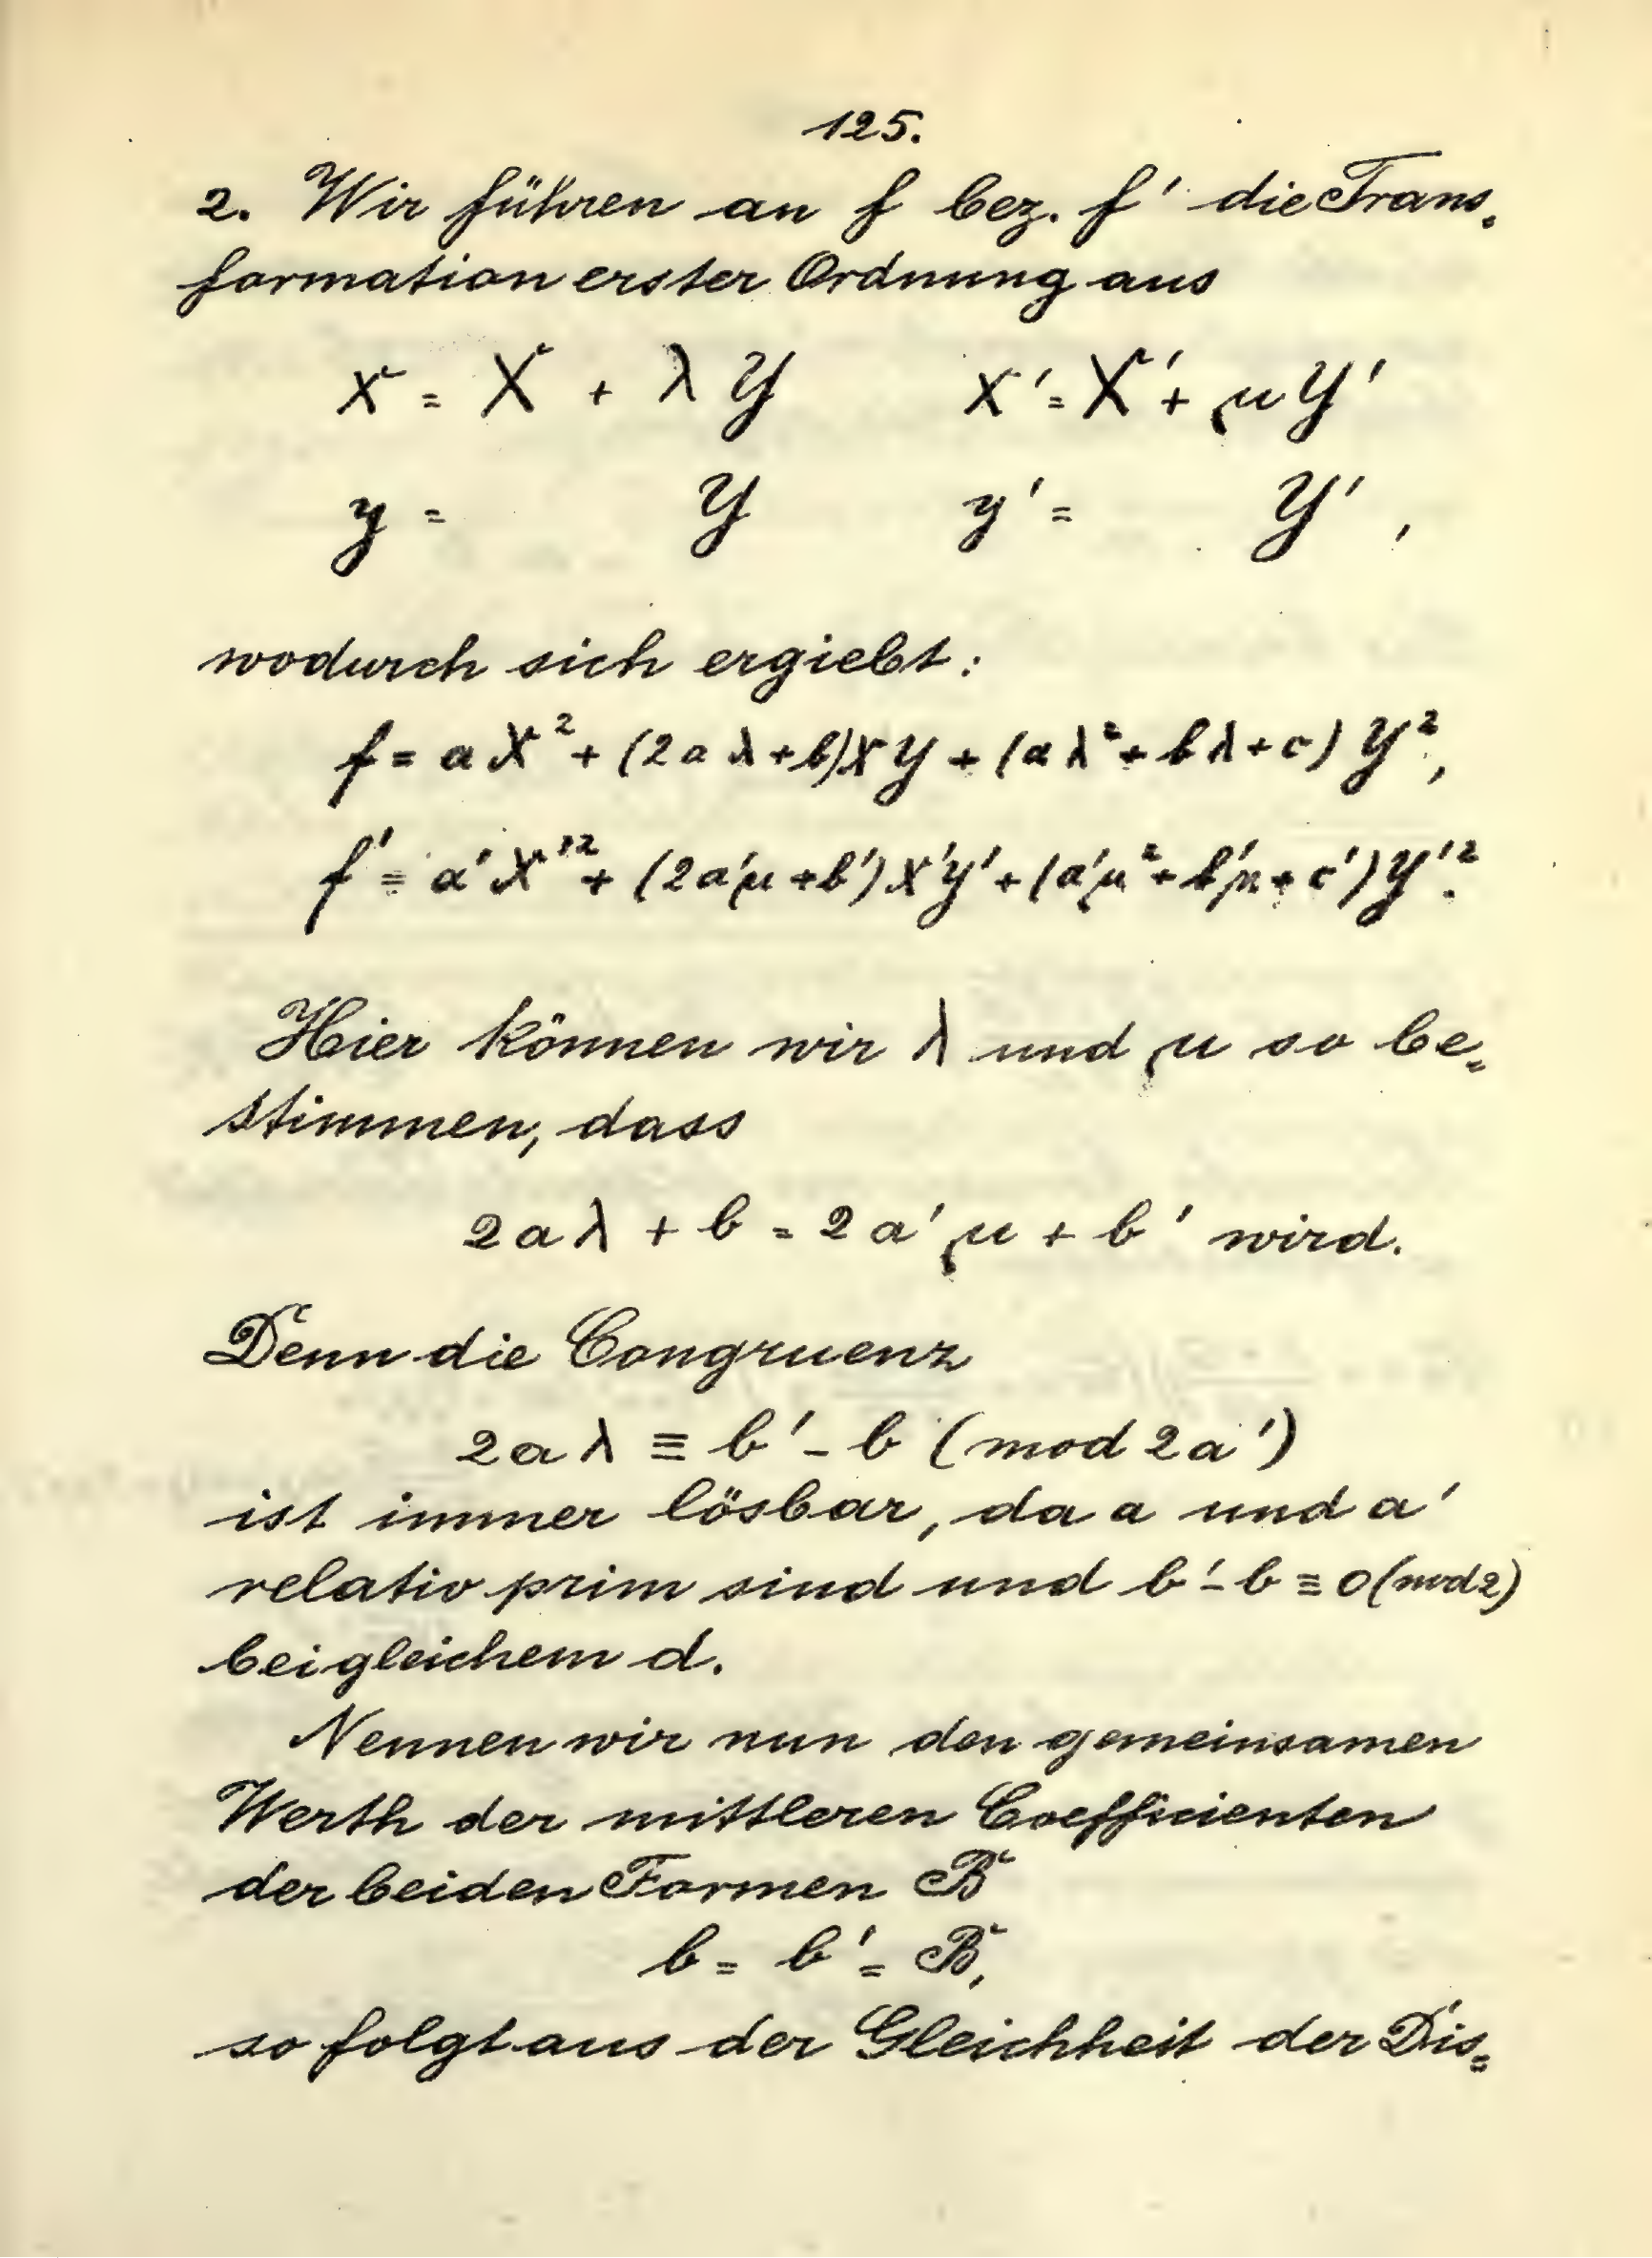 125.
2. Wir führen an f bez. f' die Trans=
formation erster Ordnung aus
x = X + λ Y    x' = X' + μ Y'
y = Y    y' = Y' ,
wodurch sich ergiebt:
f = a X² + (2aλ+b)XY + (aλ²+bλ+c) Y²,
f' = a'X'² + (2a'μ+b')X'Y' + (a'μ²+b'μ+c')Y'².
Hier können wir λ und μ so be=
stimmen, dass
2aλ + b = 2a'μ + b' wird.
Denn die Congruenz
2aλ ≡ b' - b (mod 2a')
ist immer lösbar, da a und a'
relativ prim sind und b' - b ≡ 0 (mod 2)
bei gleichem d.
Nennen wir nun den gemeinsamen
Werth der mittleren Coefficienten
der beiden Formen B
b = b' = B,
so folgt aus der Gleichheit der Dis=